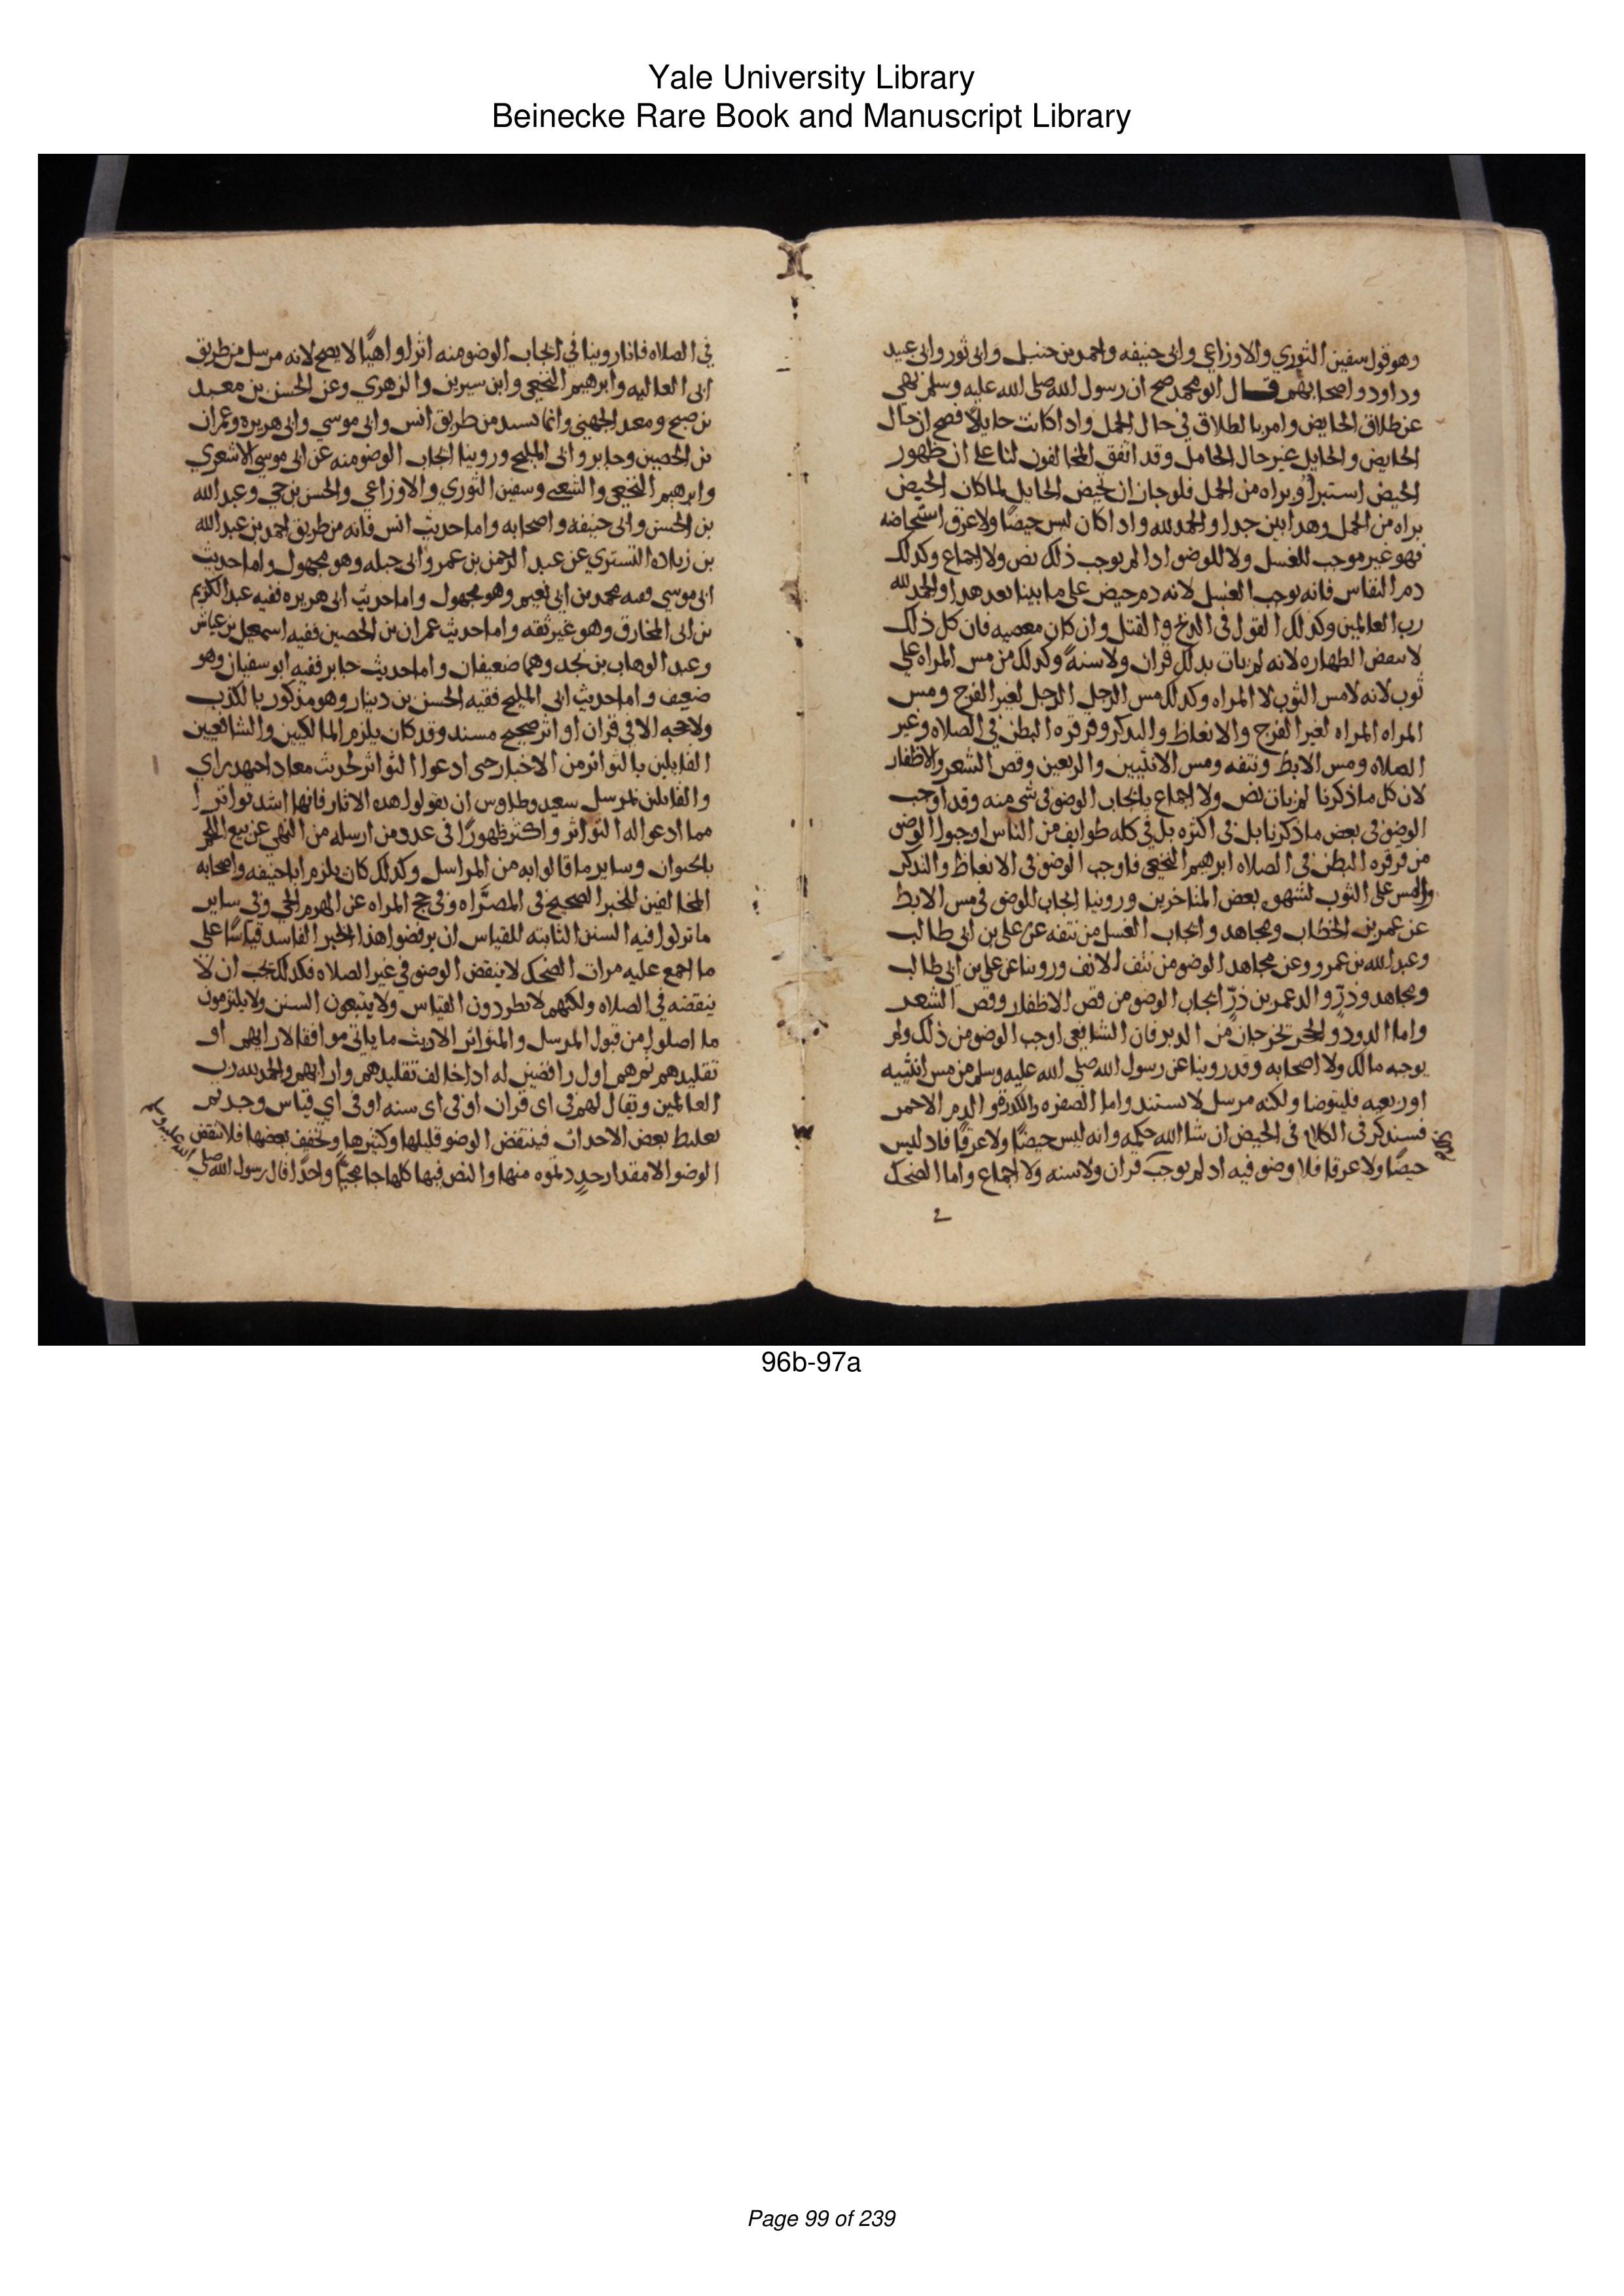 Yale University Library
Beinecke Rare Book and Manuscript Library
وهو قول سفين الثوري والاوزاعي وابى حنيفه واحمد بن حنبل وابى ثور وابى عبيد
وداود واصحابهم قال ابو محمد صح ان رسول الله صلى الله عليه وسلم نهى
عن طلاق الحايض وامر بالطلاق في حال الحمل واذا كانت حايلا فصح ان حال
الحايض والحايل غير حال الحامل وقد اتفق المخالفون لنا على ان ظهور
الحيض استبرا وبراه من الحمل فلو جاز ان تحيض الحامل لما كان الحيض
براه من الحمل وهذا بين جدا والحمد لله واذا كان ليس حيضا ولا عرق استحاضه
فهو غير موجب للغسل ولا للوضو اذا لم يوجب ذلك نص ولا اجماع وكذلك
دم النفاس فانه يوجب الغسل لانه دم حيض على ما بينا بعد هذا والحمد لله
رب العالمين وكذلك القول في الذبح والقتل وان كان معصيه فان كل ذلك
لا ينقض الطهاره لانه لم يات بذلك قران ولا سنة وكذلك من مس المراه على
ثوب لانه لامس الثوب لا المراه وكذلك مس الرجل الرجل لغير الفرج ومس
المراه المراه لغير الفرج والانعاظ والتذكر وقرقره البطن في الصلاه وغير
الصلاه ومس الابط ونتفه ومس الانثيين والرفغين وقص الشعر والاظفار
لان كل ما ذكرنا لم يات نص ولا اجماع بايجاب الوضو في شي منه وقد اوجب
الوضو في بعض ما ذكرنا بل في اكثره بل في كله طوايف من الناس اوجبوا الوضو
من قرقره البطن في الصلاه ابرهيم النخعي فاوجب الوضو في الانعاظ والتذكر
والمس على الثوب لشهوه بعض المتاخرين وروينا ايجاب الوضو في مس الابط
عن عمر بن الخطاب ومجاهد وايجاب الغسل من نتفه عن علي بن ابى طالب
وعبد الله بن عمرو وعن مجاهد الوضو من نتف الانف وروينا عن علي بن ابي طالب
ومجاهد وذر والد عمر بن ذر ايجاب الوضو من قص الاظفار وقص الشعر
واما الدود والحجر يخرجان من الدبر فان الشافعي اوجب الوضو من ذلك ولم
يوجبه مالك ولا اصحابه وقد روينا عن رسول الله صلى الله عليه وسلم من مس انثييه
او رفغيه فليتوضا ولكنه مرسل لا يستند واما الصفره والكدره والدم الاحمر
فسنذكر في الكلام في الحيض ان شا الله حكمه وانه ليس حيضا ولا عرقا فاذ ليس
حيضا ولا عرقا فلا وضو فيه اذ لم يوجب قران ولا سنه ولا اجماع واما الضحك
في الصلاه فانا روينا في ايجاب الوضو منه اثرا واهيا لا يصح لانه مرسل من طريق
ابى العاليه وابرهيم النخعي وابن سيرين والزهري وعن الحسن بن معبد
بن صبح ومعبد الجهني وانما يسند من طريق انس وابى موسي وابى هريره وعمران
بن الحصين وجابر وابى المليح وروينا ايجاب الوضو منه عن ابى موسي الاشعري
وابرهيم النخعي والشعبي وسفين الثوري والاوزاعي والحسن بن حي وعبد الله
بن الحسن وابى حنيفه واصحابه واما حديث انس فانه من طريق احمد بن عبد الله
بن زياد التستري عن عبد الرحمن بن عمرو ابى جبله وهو مجهول واما حديث
ابى موسي ففيه محمد بن ابى نعيم وهو مجهول واما حديث ابى هريره ففيه عبد الكريم
بن ابى المخارق وهو غير ثقه واما حديث عمران بن الحصين ففيه اسمعيل بن عياش
وعبد الوهاب بن نجد وهما ضعيفان واما حديث جابر ففيه ابو سفيان وهو
ضعيف واما حديث ابى المليح ففيه الحسن بن دينار وهو مذكور بالكذب
ولا حجه الا في قران او اثر صحيح مسند وقد كان يلزم المالكيين والشافعيين
القايلين بالتواتر من الاخبار حتى ادعوا التواتر لحديث معاذ اجتهد راي
والقايلين بمرسل سعيد وطاوس ان يقولوا بهذه الاثار فانها اشد تواترا
مما ادعوا له التواتر واكثر ظهورا في عدد من ارسله من النهي عن بيع اللحم
بالحيوان وساير ما قالوا به من المراسل وكذلك كان يلزم ابا حنيفه واصحابه
المخالفين للخبر الصحيح في المصراه وفي حج المراه عن الهرم الحي وفي ساير
ما تركوا فيه السنن الثابته للقياس ان يرفضوا هذا الخبر الفاسد قياسا على
ما اجمع عليه من ان الضحك لا ينقض الوضو في غير الصلاه فكذلك يجب ان لا
ينقضه في الصلاه ولكنهم لا يطردون القياس ولا يتبعون السنن ولا يلتزمون
ما اصلوا من قبول المرسل والمتواتر الا ريث ما ياتى موافقا لارايهم او
تقليدهم ثم هم اول رافضين له اذا خالف تقليدهم وارايهم والحمد لله رب
العالمين ويقال لهم في اى قران او في اى سنه او في اي قياس وجدتم
تغليظ بعض الاحداث فينتقض الوضو قليلها وكثيرها وتخفيف بعضها فلا ينقض
الوضو الا مقدار حد دتموه منها والنص فيها كلها جا مجيا واحدا قال رسول الله صلى
الله عليه وسلم
96b-97a
Page 99 of 239